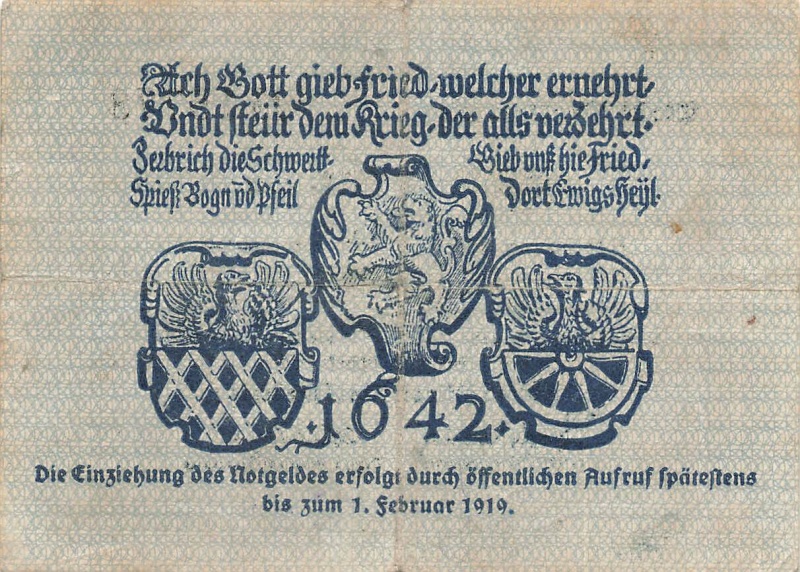 Ach Gott gieb Fried, welcher ernehrt,
Vndt steür dem Krieg, der alls verzehrt.
Zerbrich die Schwertt
Spieß Bogn vd Pfeil
Gieb vnß hie Fried,
Dort Ewigs Heÿl.
.1642.
Die Einziehung des Notgeldes erfolgt durch öffentlichen Aufruf spätestens
bis zum 1. Februar 1919.